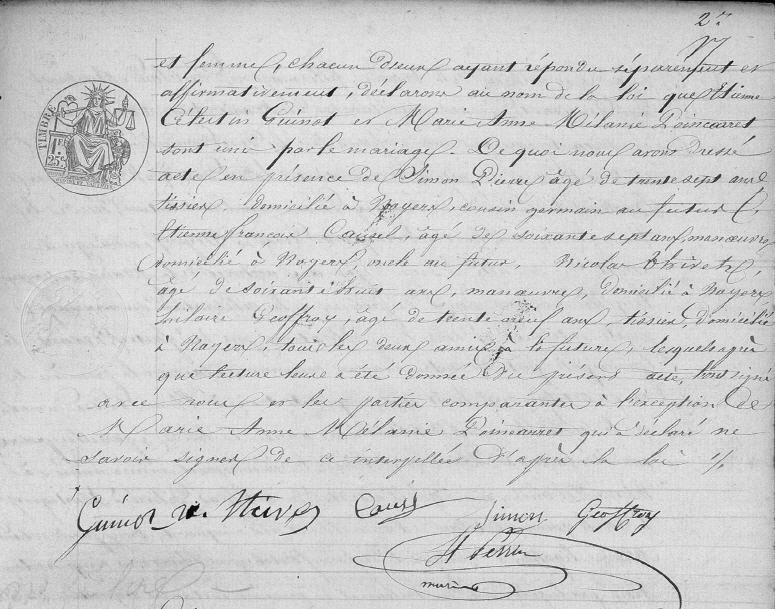 2
et femme, chacun d'eux ayant répondu séparément et
affirmativement, déclarons au nom de la loi que Etienne
Célestin Guinot et Marie Anne Mélanie Poincarret
sont unis par le mariage. De quoi nous avons dressé
TIMBRE
1 FR
25 c
acte en présence de Simon Pierre âgé de trente sept ans
tissier, domicilié à Noyers, cousin germain au futur
Etienne françois âgé de soixante sept ans, manœuvre
domicilié à Noyers, oncle au futur, Nicolas
âgé de soixante huit ans, manœuvre, domicilié à Noyers
hilaire Geoffroy, âgé de trente neuf ans, tissier, domicilié
à Noyers, tous les deux amis à la future, lesquels après
que lecture leur a été donnée du présent acte, l'ont signé
avec nous et les parties comparantes à l'exception de
Marie Anne Mélanie Poincarret qui a déclaré ne
savoir signer de ce interpellée d'après la loi ./.
Guinot Simon Geoffroy